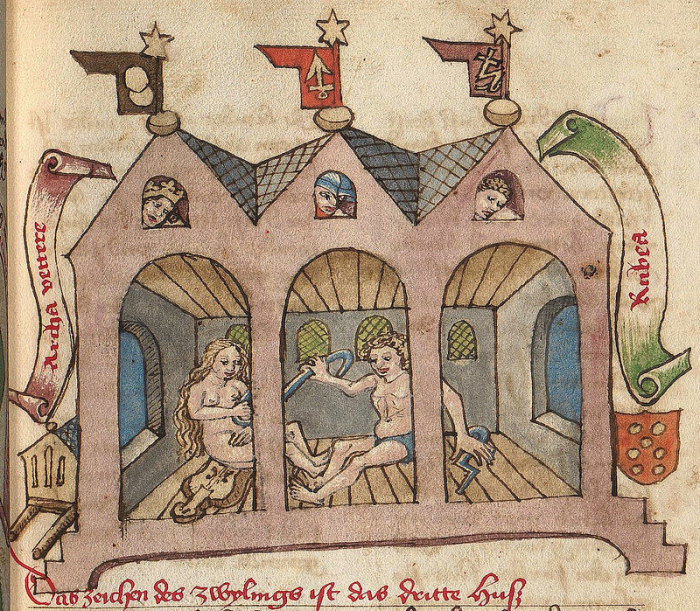 Archa venere
Rubea
Das zeichen des zwylings ist das dritte Husz